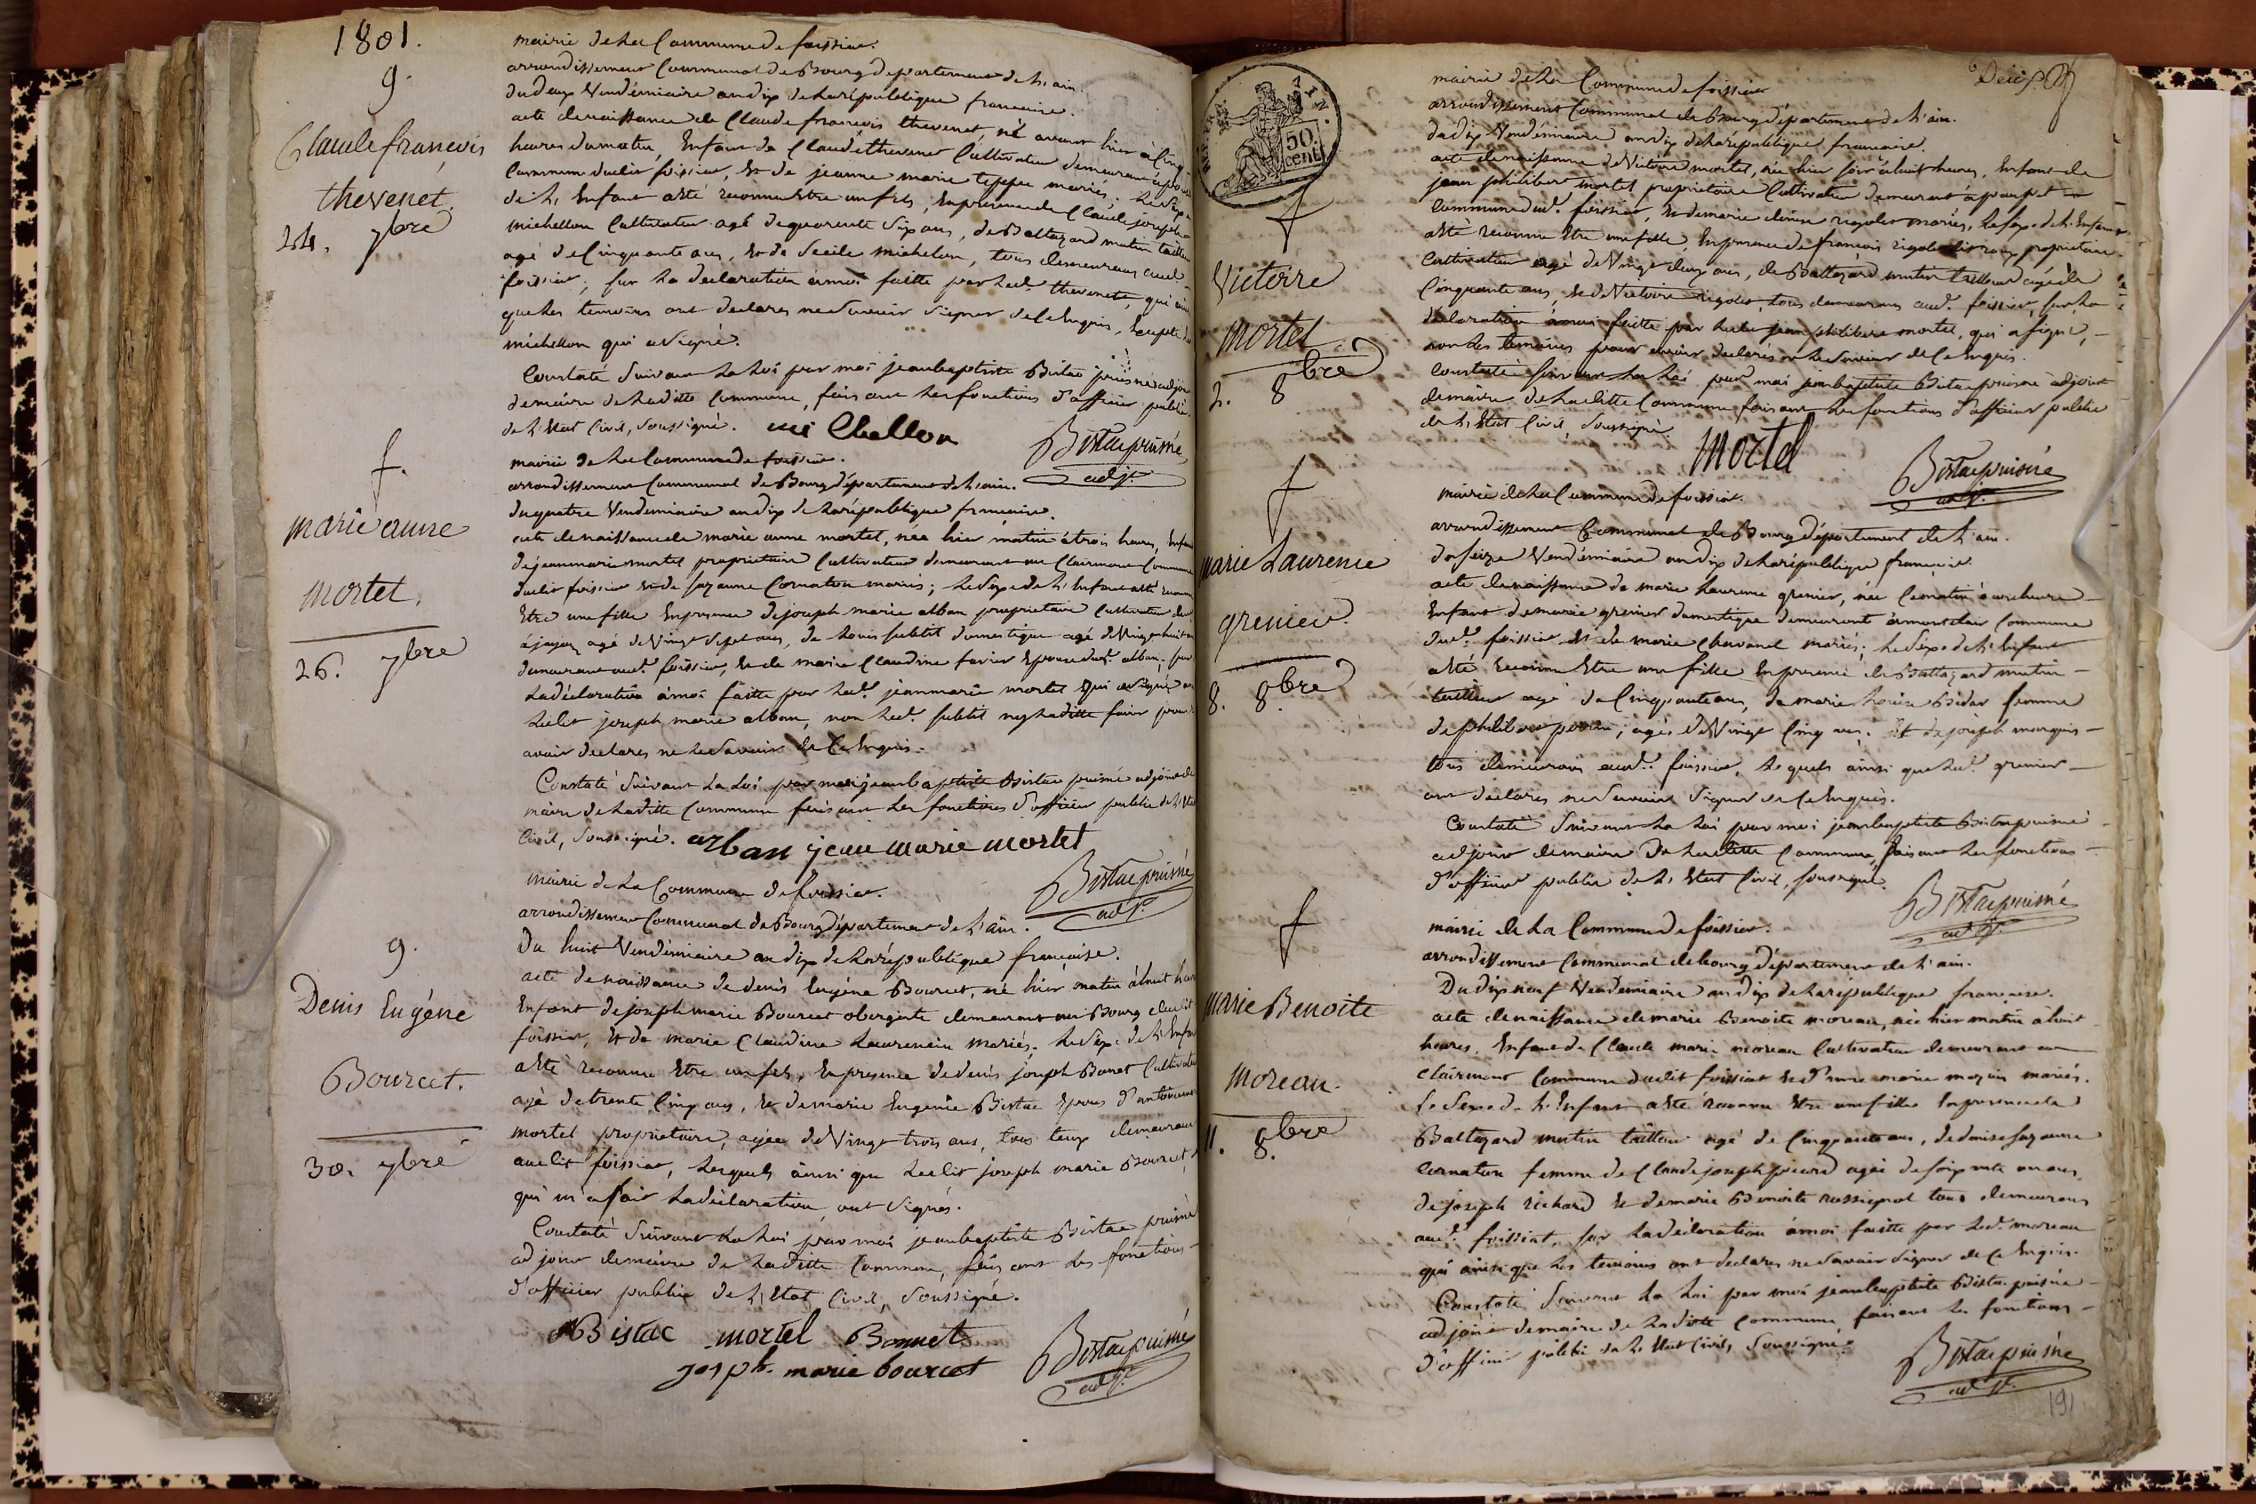 1801.
g.
Claude françois
thevenet.
24. 7bre
mairie de la Commune de foissiat.
arrondissement Communal de Bourg departement de l'ain.
du deux Vendémiaire an dix de la république francaise.
acte de naissance de Claude francois thevenet, né avant hier à Cinq
heures du matin, Enfant de Claude thevenet Cultivateur demeurant
Commune dudit foissiat, Et de jeanne marie teppe mariés; le sexe
de l'Enfant a été reconnu Etre un fils, En presence de Claude joseph
michellon Cultivateur agé de quarente Six ans, de Baltazard mutin tailleur
agé de Cinquante ans, Et de Cecile michelon, tous demeurans aud.
foissiat, sur la déclaration à moi faitte par led. thevenet, qui ainsi
que les temoins ont declarés ne Savoir Signer de Ce Enquis, Excepté led
michellon qui a signé.
Constaté Suivant la Loi par moi jean baptiste Bistac puisné adjoint
de maire de laditte Commune, faisant les fonctions d'officier public
de l'Etat Civil, Soussigné. mi Chellon
Bistac puisné
adjt.
f.
marie anne
mortel.
26. 7bre
mairie de la Commune de foissiat.
arrondissement Communal de Bourg département de l'ain.
du quatre Vendemiaire an dix de la république française.
acte de naissance de marie anne mortel, née hier matin à trois heures, Enfant
de jean marie mortel proprietaire Cultivateur demeurant au Clairmont Commune
dudit foissiat et de Suzanne Cornaton mariés; le Sexe de l'Enfant a été reconnu
Etre une fille En presence de joseph marie alban proprietaire Cultivateur
agé de Vingt Sept ans, de Louis Subtil domestique agé de Vingt huit ans
demeurant aud. foissiat, Et de marie Claudine favier Epouse dud. alban; sur
la déclaration à moi faitte par led. jean marie mortel qui a signé avec
ledit joseph marie alban, non led. subtil ny laditte favier pour
avoir declarés ne le Savoir de Ce Enquis.
Constaté Suivant la Loi par moi jean baptiste Bistac puisné adjoint de
maire de laditte Commune faisant les fonctions d'officier public de l'Etat
Civil, Soussigné. arban jean marie mortel
Bistac puisné
adjt.
g.
Denis Eugéne
Bourcet.
30. 7bre
mairie de la Commune de foissiat.
arrondissement Communal de Bourg département de l'ain.
Du huit Vendémiaire an dix de la république française.
acte de naissance de denis Eugéne Bourcet, né hier matin à huit heures
Enfant de joseph marie Bourcet demeurant au Bourg dudit
foissiat, Et de marie Claudine Laurencin mariés. le Sexe de l'Enfant
a été reconnu Etre un fils, En presence de denis joseph Bonet Cultivateur
agé de trente Cinq ans, Et de marie Eugenie Bistac Epouse d'antoine
mortel proprietaire, agée de Vingt trois ans, tous deux demeurans
audit foissiat, lesquels ainsi que ledit joseph marie Bourcet,
qui m'a fait la déclaration, ont Signés.
Constaté Suivant la Loi par moi jean baptiste Bistac puisné
adjoint de maire de laditte Commune, faisant les fonctions
d'officier public de l'Etat Civil, Soussigné.
Bistac mortel Bonnet
josph. marie bourcet
Bistac puisné
adjt.
50
cent
f
Victoire
mortel
2. 8bre
mairie de la Commune de foissiat
arrondissement Communal de Bourg département de l'ain.
du dix Vendémiaire an dix de la république francaise.
acte de naissance de Victoire mortel, née hier soir à huit heures, Enfant de
jean philibert mortel proprietaire Cultivateur demeurant à
Commune dud. foissiat, Et de marie rigolet mariés, le sexe de l'Enfant
a été reconnu Etre une fille, En presence de francois rigolet proprietaire
Cultivateur agé de Vingt deux ans, de Baltazard mutin tailleur agé de
Cinquante ans, Et de Victoire rigolet, tous demeurans aud. foissiat, sur la
declaration à moi faitte par ledit jean philibert mortel, qui a signé,
non les temoins pour avoir declarés ne le Savoir de Ce Enquis.
Constaté Suivant la Loi par moi jean baptiste Bistac puisné adjoint
de maire de laditte Commune faisant les fonctions d'officier public
de l'Etat Civil Soussigné.
Mortel
Bistac puisné
adjt.
f
marie Laurence
grenier.
8. 8bre
mairie de la Commune de foissiat.
arrondissement Communal de Bourg département de l'ain.
du seize Vendémiaire an dix de la république francaise.
acte de naissance de marie Laurence grenier, née Ce matin à une heure
Enfant de marie grenier domestique demeurant à Commune
dud. foissiat Et de marie Chavanel mariés; le sexe de l'Enfant
a été reconnu Etre une fille En presence de Baltazard mutin
tailleur agé de Cinquante ans, de marie Louise Bidar femme
de philibert, agée de Vingt Cinq ans. Et de joseph marquis
tous demeurans aud. foissiat, lesquels ainsi que led. grenier
ont declarés ne Savoir Signer de Ce Enquis.
Constaté Suivant la Loi par moi jean baptiste Bistac puisné
adjoint de maire de laditte Commune, faisant les fonctions
d'officier public de l'Etat Civil, soussigné.
Bistac puisné
adjt.
f
marie Benoite
moreau.
11. 8bre
mairie de la Commune de foissiat.
arrondissement Communal de bourg département de l'ain.
Du dix neuf Vendemiaire an dix de la république française.
acte de naissance de marie Benoite moreau, née hier matin a huit
heures, Enfant de Claude marie moreau Cultivateur demeurant au
clairmont Commune dudit foissiat Et d'anne marie mariés.
le Sexe de l'Enfant a été reconnu Etre une fille En presence de
Baltazard mutin tailleur agé de Cinquante ans, de denise suzanne
Cornaton femme de Claude joseph agée de soixante un ans,
de joseph richard Et de marie Benoite rossignol tous demeurans
aud. foissiat, sur la déclaration à moi faitte par led. moreau
qui ainsi que les temoins ont declarés ne Savoir Signer de Ce Enquis.
Constaté Suivant la Loi par moi jean baptiste Bistac puisné
adjoint de maire de laditte Commune, faisant les fonctions
d'officier public de l'Etat Civil, Soussigné.
Bistac puisné
adjt.
191